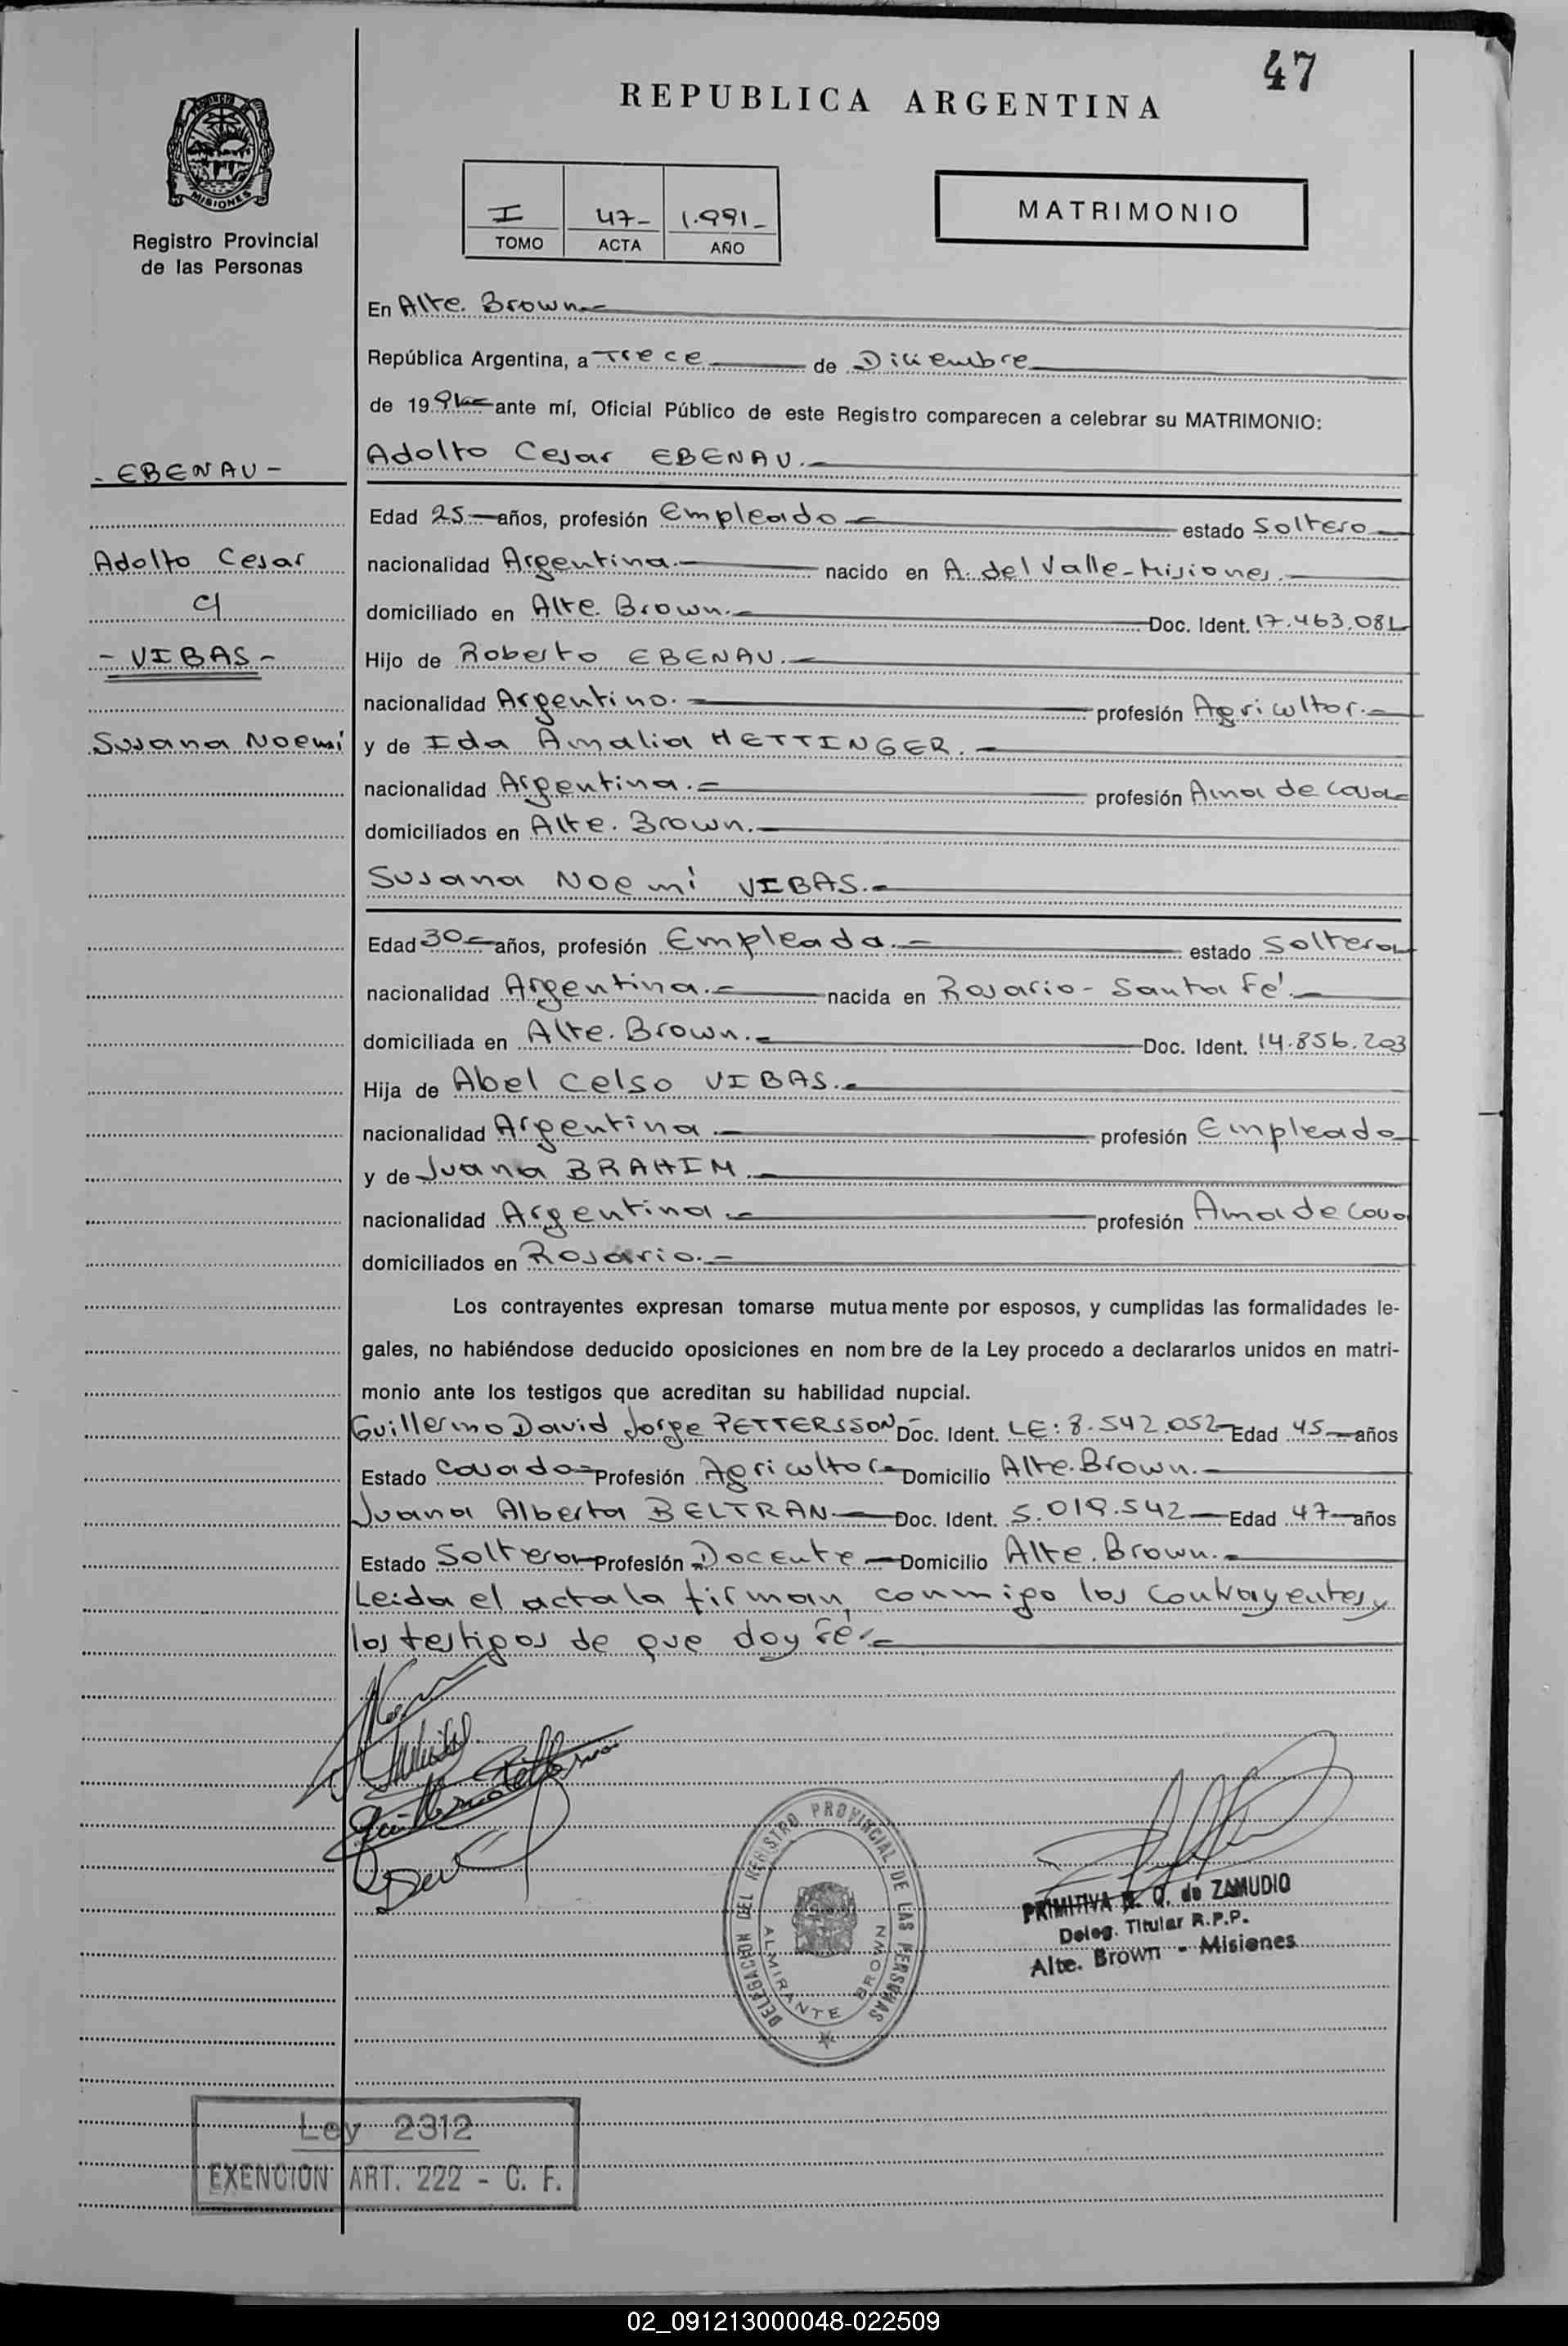 47
REPUBLICA ARGENTINA
MISIONES
Registro Provincial
de las Personas
I 47- 1.991-
TOMO ACTA AÑO
MATRIMONIO
En Alte. Brown.-
República Argentina, a Trece de Diciembre
de 1991.- ante mí, Oficial Público de este Registro comparecen a celebrar su MATRIMONIO:
- EBENAU -
Adolfo Cesar EBENAU.-
Edad 25.- años, profesión Empleado - estado Soltero
Adolfo Cesar
nacionalidad Argentina.- nacido en A. del Valle-Misiones.-
c/
domiciliado en Alte. Brown.- Doc. Ident. 17.463.081
- VIBAS -
Hijo de Roberto EBENAU.-
nacionalidad Argentino.- profesión Agricultor.-
Susana Noemí
y de Ida Amalia HETTINGER.-
nacionalidad Argentina.- profesión Ama de casa
domiciliados en Alte. Brown.-
Susana Noemí VIBAS.-
Edad 30 - años, profesión Empleada.- estado Soltera
nacionalidad Argentina.- nacida en Rosario - Santa Fé.-
domiciliada en Alte. Brown.- Doc. Ident. 14.856.203
Hija de Abel Celso VIBAS.-
nacionalidad Argentina.- profesión Empleado
y de Juana BRAHIM.-
nacionalidad Argentina.- profesión Ama de casa
domiciliados en Rosario.-
Los contrayentes expresan tomarse mutuamente por esposos, y cumplidas las formalidades le-
gales, no habiéndose deducido oposiciones en nombre de la Ley procedo a declararlos unidos en matri-
monio ante los testigos que acreditan su habilidad nupcial.
Guillermo David Jorge PETTERSSON Doc. Ident. LE: 8.542.052- Edad 45- años
Estado Casado- Profesión Agricultor- Domicilio Alte. Brown.-
Juana Alberta BELTRAN- Doc. Ident. 5.019.542- Edad 47- años
Estado Soltera- Profesión Docente- Domicilio Alte. Brown.-
Leida el acta la firman, conmigo los contrayentes y
los testigos de que doy fé.-
DELEGACION DEL REGISTRO PROVINCIAL DE LAS PERSONAS
ALMIRANTE BROWN
PRIMITIVA Q. de ZAMUDIO
Deleg. Titular R.P.P.
Alte. Brown - Misiones
Ley 2312
EXENCION ART. 222 - C. F.
02_091213000048-022509